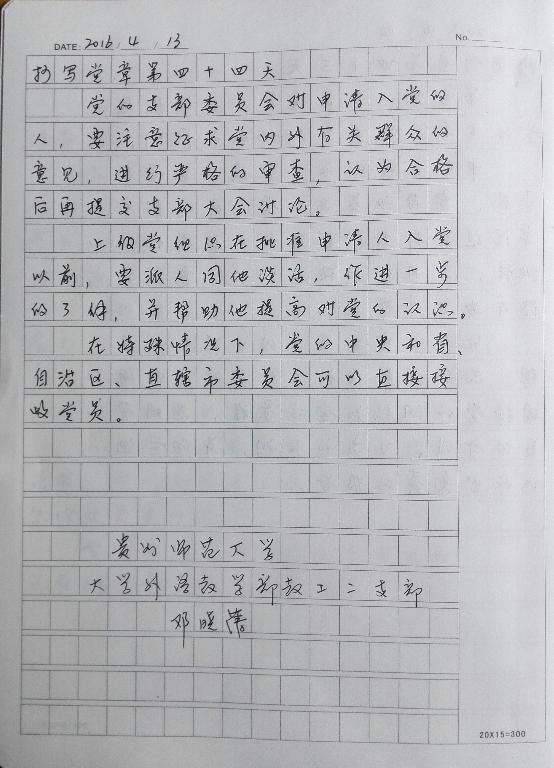 DATE: 2016 / 4 / 13
No.
抄写党章第四十四天
党的支部委员会对申请入党的
人，要注意征求党内外有关群众的
意见，进行严格的审查，认为合格
后再提交支部大会讨论。
上级党组织在批准申请人入党
以前，要派人同他谈话，作进一步
的了解，并帮助他提高对党的认识。
在特殊情况下，党的中央和省、
自治区、直辖市委员会可以直接接
收党员。
贵州师范大学
大学外语教学部教工二支部
邓晓
20X15=300